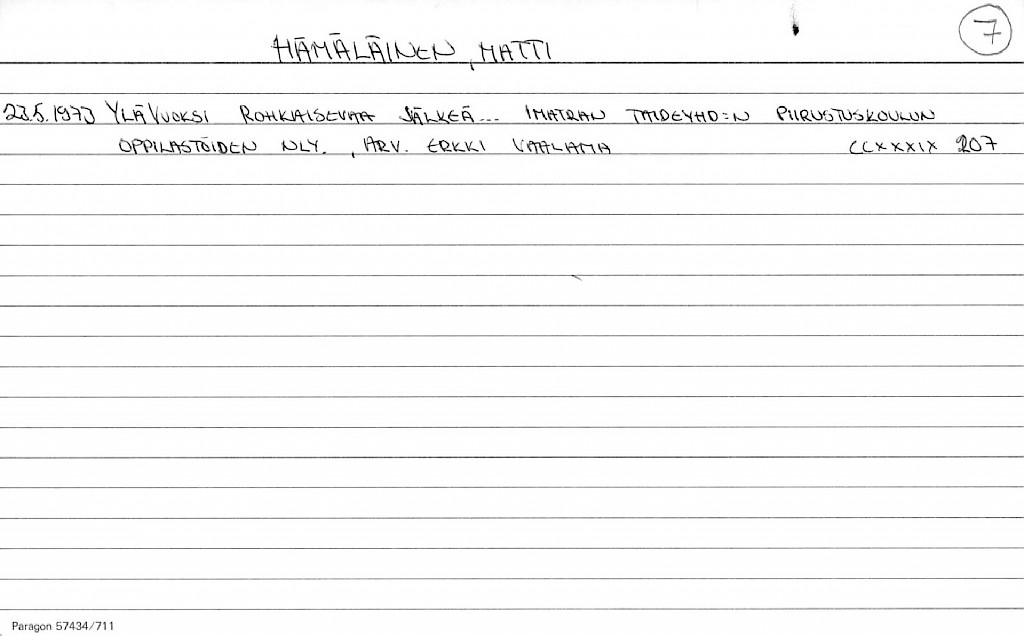 7
HÄMÄLÄINEN, MATTI
23.5.1973 YLÄVUOKSI ROHKAISEVAA JÄLKEÄ... IMATRAN TAIDEYHD:N PIIRUSTUSKOULUN
OPPILASTÖIDEN NLY., ARV. ERKKI VAALAMA CCXXXIX 207
Paragon 57434/711